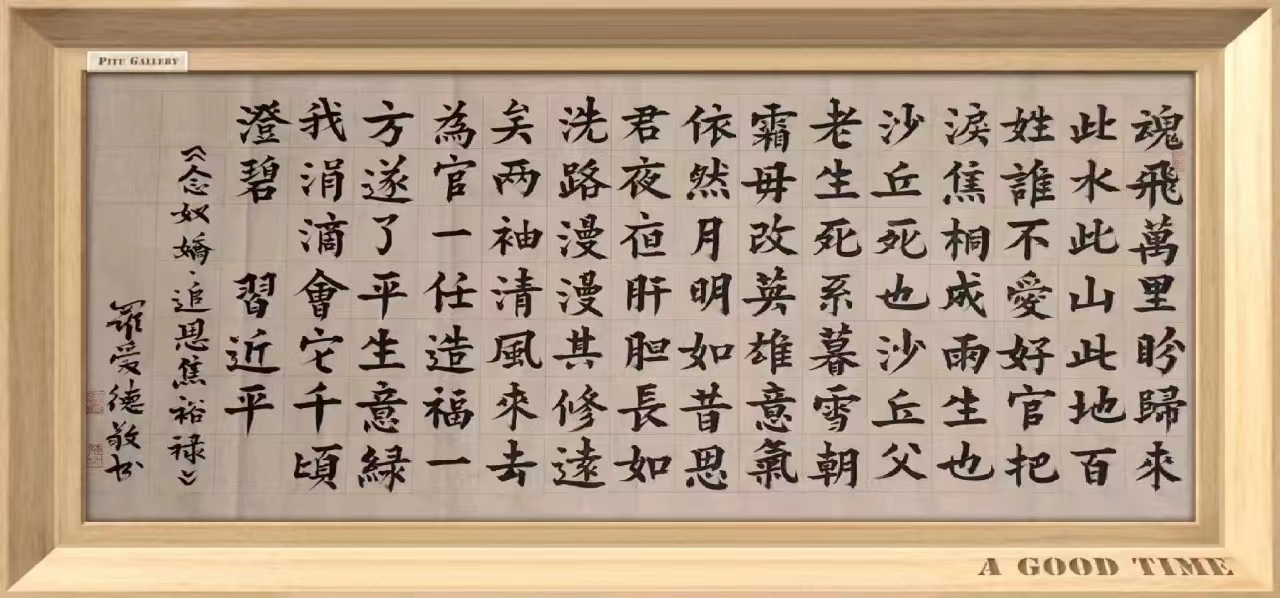 PITU GALLERY
魂飛萬里盼歸來
此水此山此地百
姓誰不愛好官把
淚焦桐成雨生也
沙丘死也沙丘父
老生死系暮雪朝
霜毋改英雄意氣
依然月明如昔思
君夜夜肝胆長如
洗路漫漫其修遠
矣两袖清風來去
為官一任造福一
方遂了平生意緑
我涓滴會它千頃
澄碧 習近平
《念奴嬌·追思焦裕禄》
羅愛德敬书
A GOOD TIME